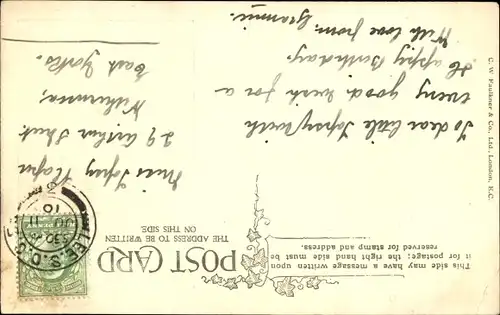 This side may have a message written upon
it for postage; the right hand side must be
reserved for stamp and address.
POST CARD
THE ADDRESS TO BE WRITTEN
ON THIS SIDE.
To dear little Topsy with
every good wish for a
Happy Birthday.
With love from Grannie.
Miss Topsy
29 Arthur Street
Withernsea,
East Yorks.
C. W. Faulkner & Co., Ltd., London, E.C.